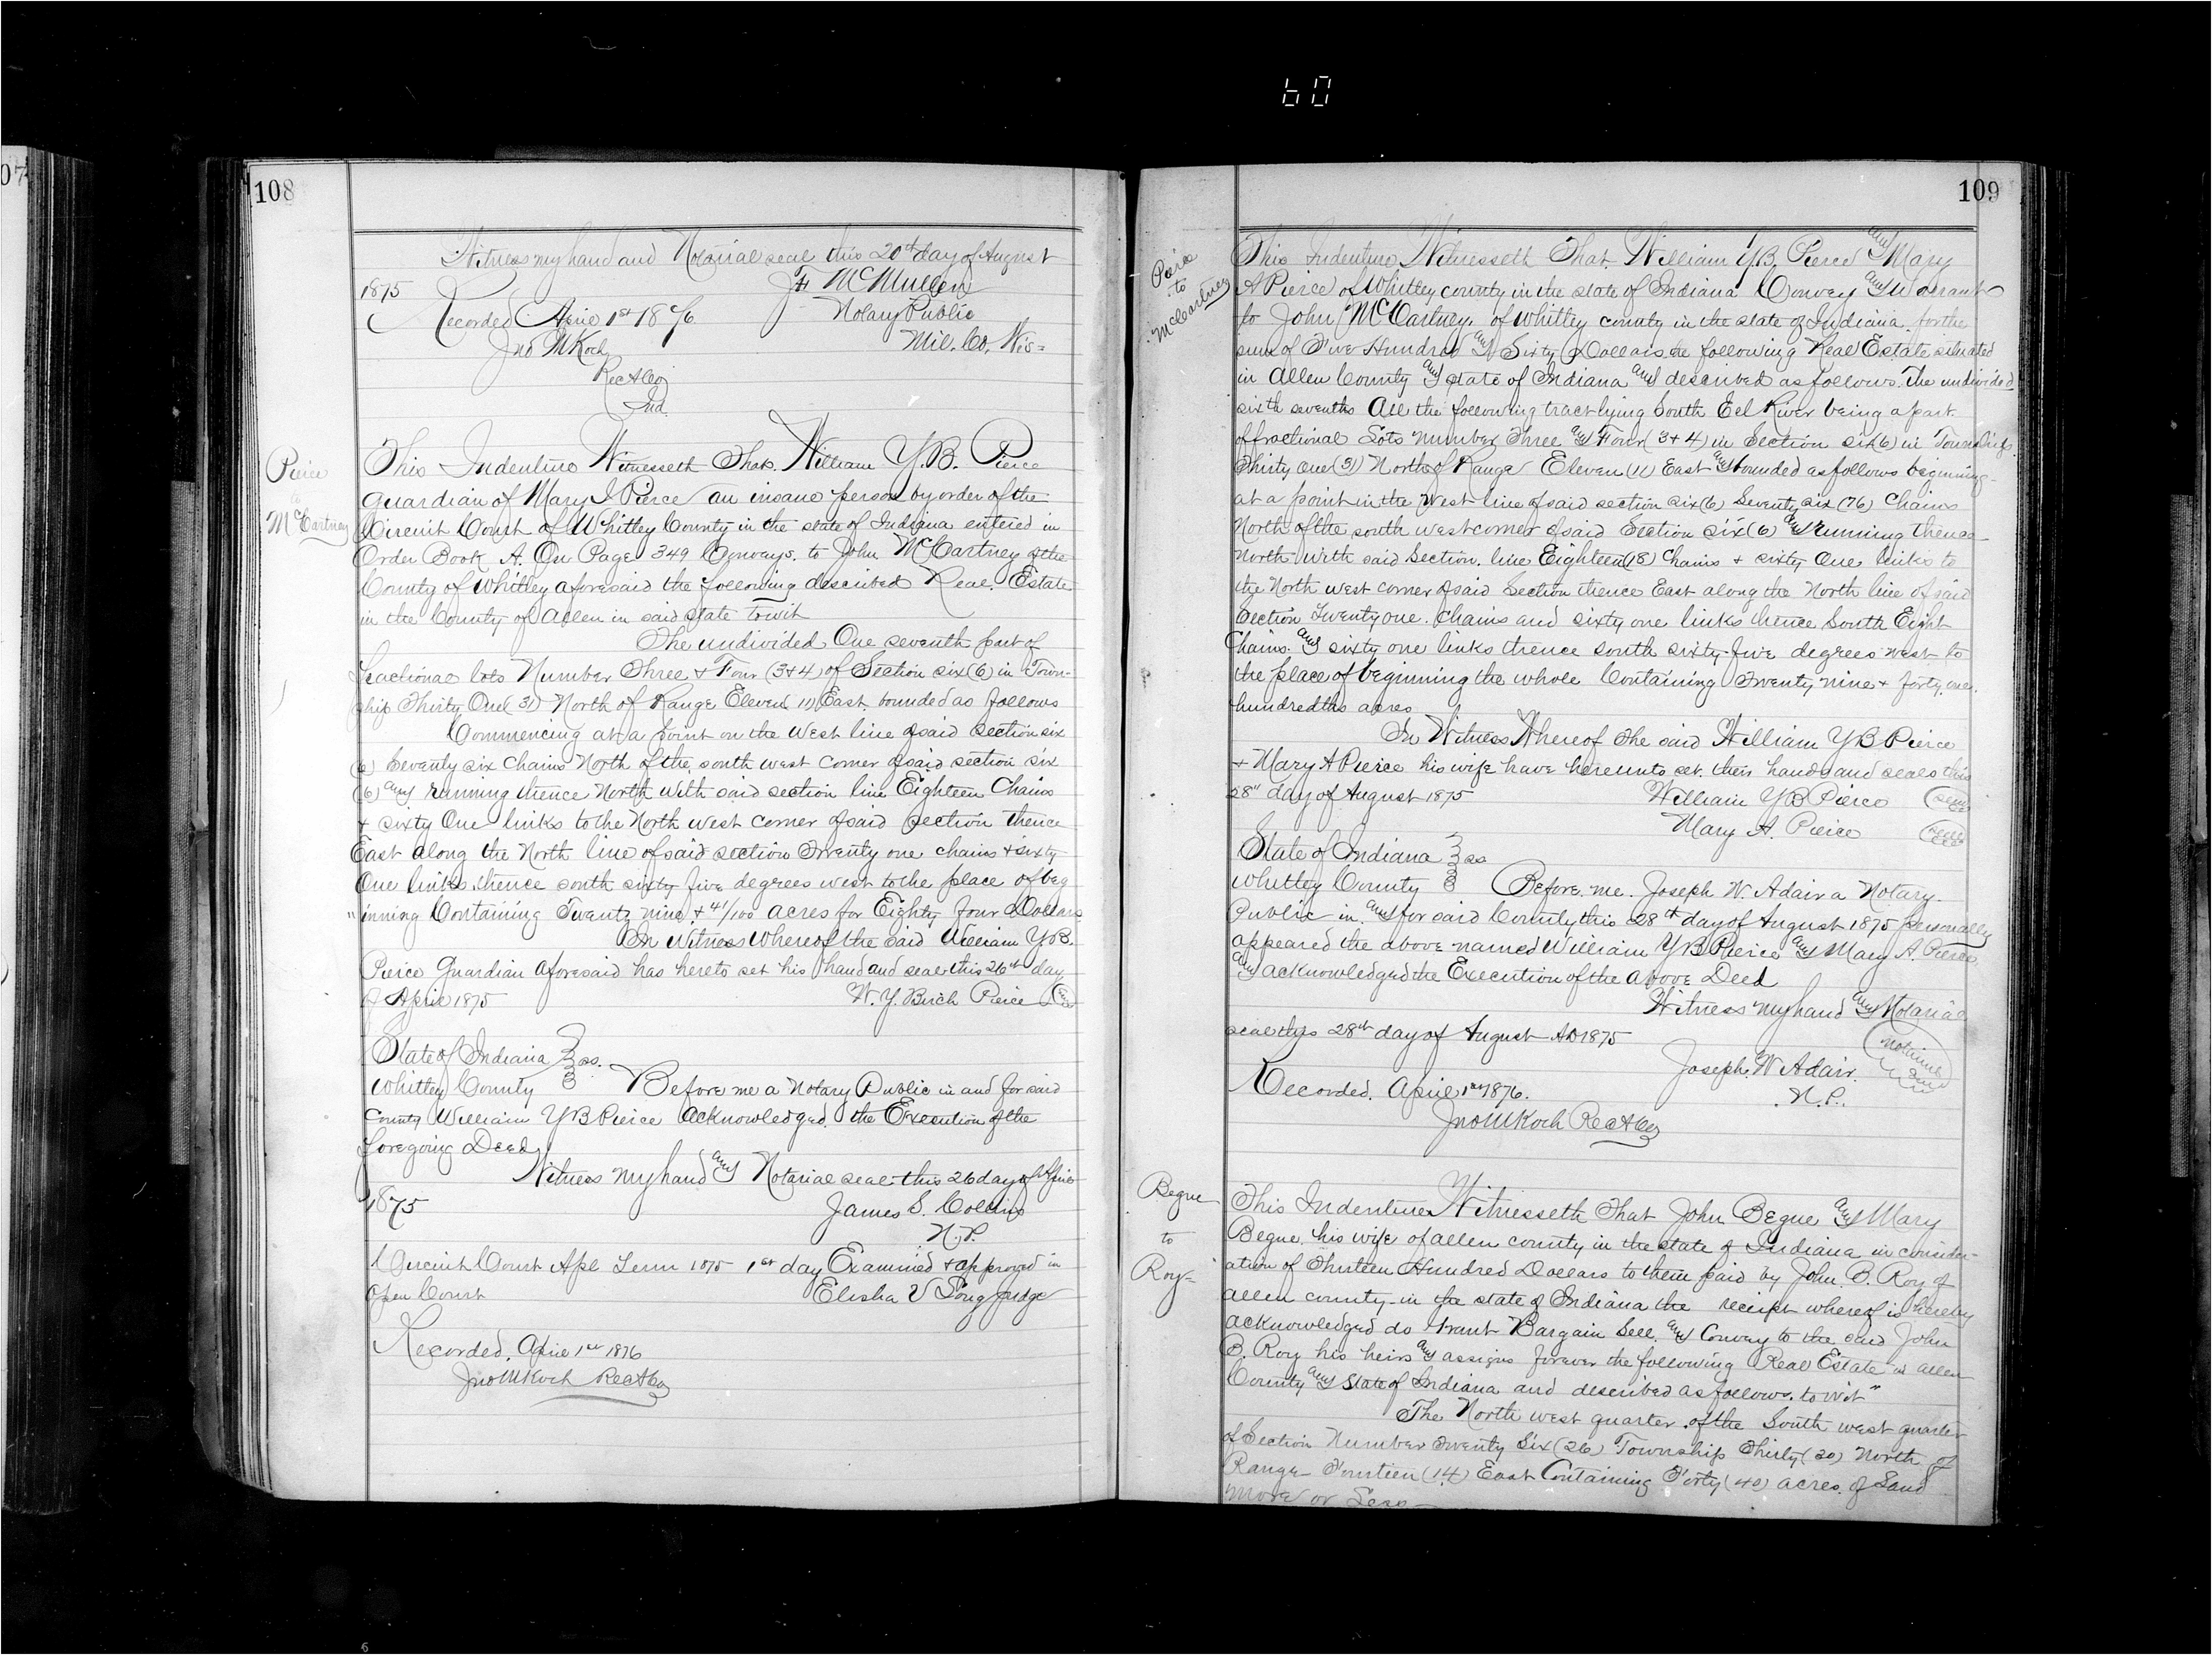 60
07
108
Witness my hand and Notarial seal this 20th day of August
1875 J F McMullen
Recorded April 1st 1876 Notary Public
Jno M Koch Mil. Co. Wis=
Rec A Co
Ind.
Pierce
to
McCartney
This Indenture Witnesseth That William Y.B. Pierce
guardian of Mary I Pierce an insane person by order of the
Circuit Court of Whitley County in the state of Indiana entered in
Order Book A. On Page 349 Conveys. to John McCartney of the
County of Whitley aforesaid the following described Real Estate
in the County of Allen in said state towit
The undivided One seventh part of
fractional lots Number Three + Four (3+4) of Section six (6) in Town-
ship Thirty One (31) North of Range Eleven (11) East bounded as follows
Commencing at a point on the West line of said section six
(6) Seventy six Chains North of the south west corner of said section six
(6) and running thence North with said section line Eighteen Chains
+ sixty One links to the North west corner of said section thence
East along the North line of said section Twenty one chains + sixty
One links thence south sixty five degrees west to the place of beg
"inning Containing Twenty nine + 41/100 acres for Eighty four Dollars
In Witness Whereof the said William Y.B.
Pierce Guardian aforesaid has hereto set his hand and seal this 26th day
of April 1875 W. Y. Birch Pierce (seal)
State of Indiana } ss.
Whitley County } Before me a Notary Public in and for said
County William Y B Pierce acknowledged the Execution of the
foregoing Deed
Witness my hand and Notarial seal this 26 day of April
1875 James S. Collins
N.P.
Circuit Court Apl Term 1875 1st day Examined + approved in
Open Court Elisha V Long Judge
Recorded. April 1st 1876
Jno M Koch Rec A Co
109
Pierce
to
McCartney
This Indenture Witnesseth That. William Y.B. Pierce and Mary
A Pierce of Whitley county in the state of Indiana Convey and Warrant
to John McCartney. of Whitley county in the state of Indiana. for the
sum of Five Hundred and Sixty Dollars the following Real Estate situated
in Allen County and state of Indiana and described as follows. The undivided
sixth sevenths All the following tract lying South Eel River being a part
of fractional Lots number Three and Four (3+4) in Section six (6) in Township
Thirty One (31) North of Range Eleven (11) East and bounded as follows beginning
at a point in the West line of said section six (6) Seventy six (76) Chains
North of the south west corner of said Section six (6) and running thence
North with said Section. line Eighteen (18) Chains + sixty One links to
the North west corner of said Section thence East along the North line of said
Section Twenty one. Chains and sixty one links thence South Eight
Chains. and sixty one links thence south sixty five degrees west to
the place of beginning the whole Containing Twenty nine + forty one.
hundredths acres
In Witness Whereof The said William Y B Pierce
+ Mary A Pierce his wife have hereunto set. their hands and seals this
28" day of August 1875 William Y B Pierce (seal)
Mary A. Pierce (seal)
State of Indiana } ss
Whitley County } Before. me. Joseph W. Adair a Notary
Public in and for said County this 28th day of August 1875 personally
appeared the above named William Y B Pierce and Mary A. Pierce
and acknowledged the Execution of the above Deed
Witness my hand and Notarial
seal this 28th day of August AD 1875
Joseph. W Adair. (notarial seal)
Recorded. April 1st 1876. N.P.
Jno M Koch Rec A Co
Begue
to
Roy=
This Indenture Witnesseth That John Begue and Mary
Begue his wife of allen county in the state of Indiana in consider-
ation of Thirteen Hundred Dollars to them paid by John. B. Roy of
allen county in the state of Indiana the receipt whereof is hereby
acknowledged do Grant Bargain Sell. and Convey to the said John
B. Roy his heirs and assigns forever the following Real Estate in allen
County and State of Indiana and described as follows. to wit"
The North west quarter of the South west quarter
of Section Number Twenty Six (26) Township Thirty (30) North of
Range Fourteen (14) East Containing Forty (40) acres of Land
more or Less
6